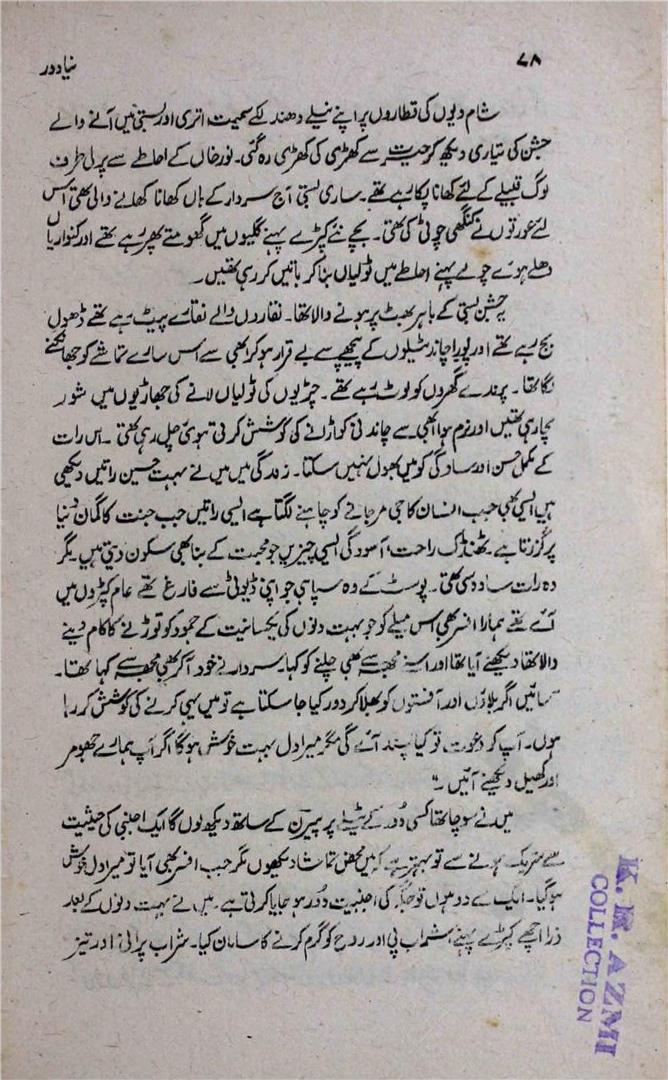 ۷۸
نیا دور
شام دیوں کی قطاروں پر اپنے نیلے دھندلکے سمیت اتری اور بستی میں آنے والے
جشن کی تیاری دیکھ کر حیرت سے کھڑی کی کھڑی رہ گئی۔ نور خاں کے احاطے سے پرلی طرف
لوگ قبیلے کے لئے کھانا پکا رہے تھے۔ ساری بستی آج سردار کے ہاں کھانا کھانے والی تھی اس
لئے عورتوں نے کنگھی چوٹی کی تھی۔ بچے نئے کپڑے پہنے گلیوں میں گھومتے پھر رہے تھے اور کنواریاں
دھلے ہوئے چولے پہنے احاطے میں ٹولیاں بنا کر باتیں کر رہی تھیں۔
یہ جشن بستی کے باہر بھٹ پر ہونے والا تھا۔ نقاروں والے نقارے پیٹ رہے تھے ڈھول
بج رہے تھے اور پورا چاند ٹیلوں کے پیچھے سے بے قرار ہو کر ابھی سے اس سارے تماشے کو جھانکنے
لگا تھا۔ پرندے گھروں کو لوٹ رہے تھے۔ چڑیوں کی ٹولیاں لانے کی جھاڑیوں میں شور
مچا رہی تھیں اور نرم ہوا ابھی سے چاندنی کو اڑنے کی کوشش کرتی ہوئی چل رہی تھی۔ اس رات
کے مکمل حسن اور سادگی کو میں بھول نہیں سکتا۔ زندگی میں میں نے بہت حسین راتیں دیکھی
ہیں ایسی بھی جب انسان کا جی مر جانے کو چاہنے لگتا ہے ایسی راتیں جب جنت کا گمان دنیا
پر گزرتا ہے۔ ٹھنڈک راحت، آسودگی ایسی چیزیں جو محبت کے بنا بھی سکون دیتی ہیں۔ مگر
وہ رات سادہ سی تھی۔ پوسٹ کے وہ سپاہی جو اپنی ڈیوٹی سے فارغ تھے عام کپڑوں میں
آئے تھے ہمارا افسر بھی اس میلے کو جو بہت دنوں کی یکسانیت کے جمود کو توڑنے کا کام دینے
والا تھا دیکھنے آیا تھا اور اس نے مجھ سے بھی چلنے کو کہا۔ سردار نے خود آ کر بھی مجھ سے کہا تھا۔
"سائیں اگر بلاؤں اور آفتوں کو بھلا کر دور کیا جا سکتا ہے تو میں یہی کرنے کی کوشش کر رہا
ہوں۔ آپ کو دعوت تو کیا پسند آئے گی مگر میرا دل بہت خوش ہو گا اگر آپ ہمارے جھومر
اور کھیل دیکھنے آئیں۔"
میں نے سوچا تھا کسی دور کے ٹیلے پر پیرن کے ساتھ دیکھ لوں گا ایک اجنبی کی حیثیت
سے شریک ہونے سے تو بہتر ہے کہ میں محض تماشا دیکھوں مگر جب افسر بھی آیا تو میرا دل خوش
ہو گیا۔ ایک سے دو ہوں تو جگہ کی اجنبیت دور ہو جایا کرتی ہے۔ میں نے بہت دنوں کے بعد
ذرا اچھے کپڑے پہنے شراب پی اور روح کو گرم کرنے کا سامان کیا۔ شراب پرانی اور تیز
K. R. AZMI
COLLECTION